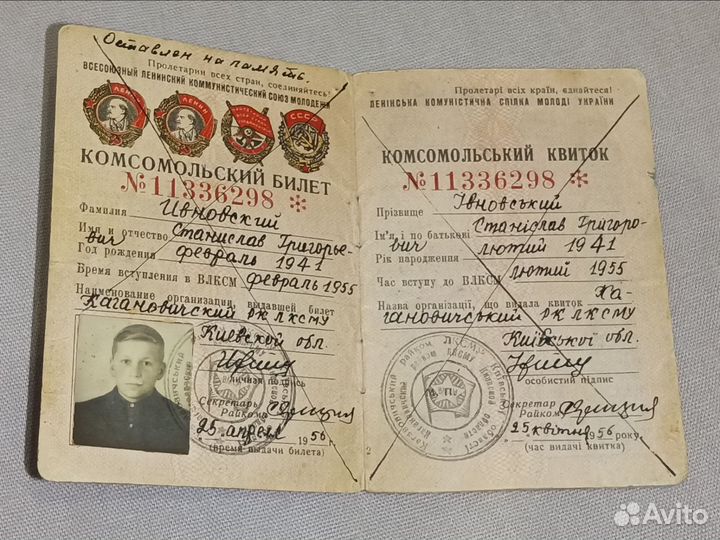 Оставлен на память.
Пролетарии всех стран, соединяйтесь!
ВСЕСОЮЗНЫЙ ЛЕНИНСКИЙ КОММУНИСТИЧЕСКИЙ СОЮЗ МОЛОДЕЖИ
ЛЕНИН
ЛЕНИН
СССР
КОМСОМОЛЬСКИЙ БИЛЕТ
№ 11336298 *
Фамилия Ивновский
Имя и отчество Станислав Григорье-
вич
Год рождения февраль 1941
Время вступления в ВЛКСМ февраль 1955
Наименование организации, выдавшей билет
Кагановичский РК ЛКСМУ
Киевской обл.
Личная подпись
Секретарь
Райкома
25 апреля 1956 г.
(время выдачи билета)
Пролетарі всіх країн, єднайтеся!
ЛЕНІНСЬКА КОМУНІСТИЧНА СПІЛКА МОЛОДІ УКРАЇНИ
КОМСОМОЛЬСЬКИЙ КВИТОК
№ 11336298 *
Прізвище Івновський
Ім'я і по батькові Станіслав Григоро-
вич
Рік народження лютий 1941
Час вступу до ВЛКСМ лютий 1955
Назва організації, що видала квиток Ка-
гановичський РК ЛКСМУ
Київської обл.
особистий підпис
Секретар
Райкому
25 квітня 1956 року.
(час видачі квитка)
2
Avito